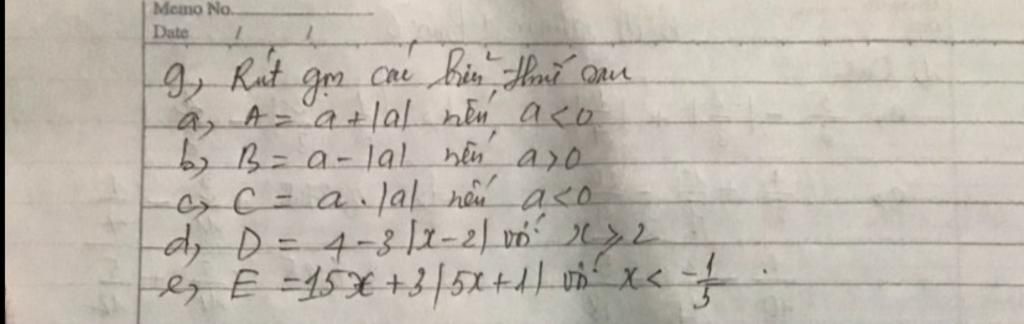 Memo No.
Date / /
9, Rút gọn các biểu thức sau
a, A = a + |a| nếu a < 0
b, B = a - |a| nếu a > 0
c, C = a . |a| nếu a < 0
d, D = 4 - 3 |x - 2| với x ≥ 2
e, E = 15x + 3 | 5x + 1 | với x < -1/5 .